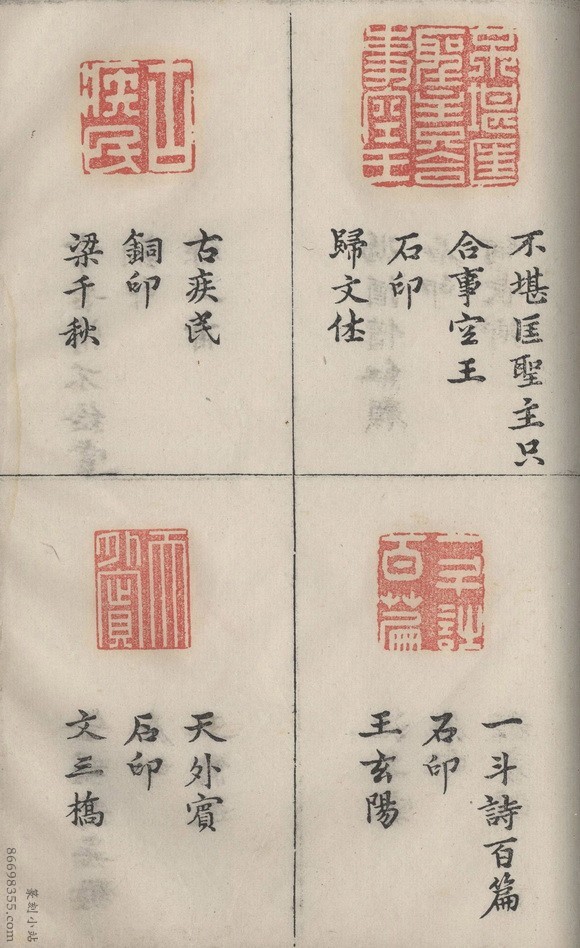 不堪匡聖主只
合事空王
石印
歸文休
古疾民
銅印
梁千秋
一斗詩百篇
石印
王玄陽
天外賓
石印
文三橋
篆刻小站
86698355.com